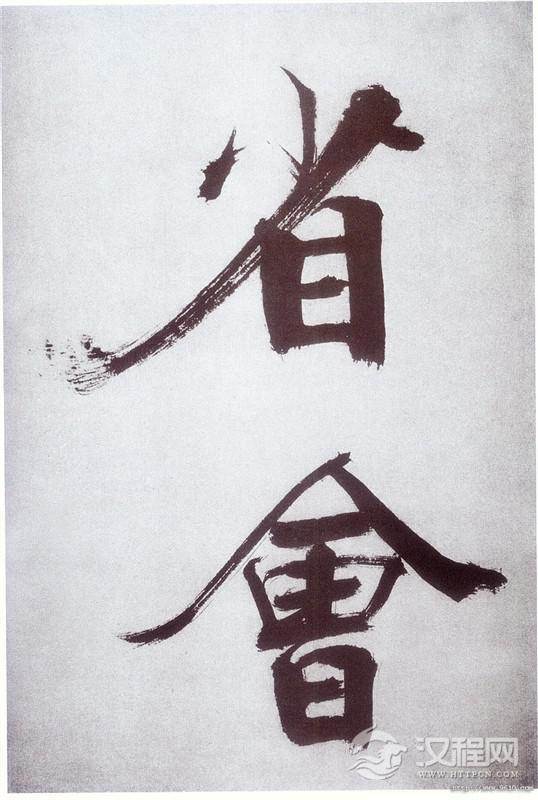 省
會
汉程网
WWW.HTTPCN.COM